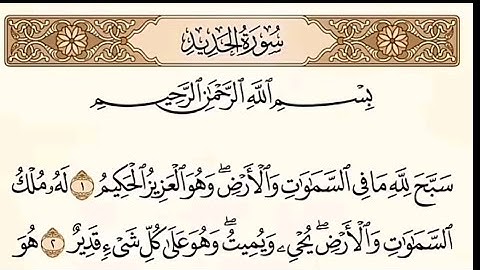 سُورَةُ الحَدِيدِ
بِسْمِ ٱللَّهِ ٱلرَّحْمَٰنِ ٱلرَّحِيمِ
سَبَّحَ لِلَّهِ مَا فِي ٱلسَّمَٰوَٰتِ وَٱلْأَرْضِۖ وَهُوَ ٱلْعَزِيزُ ٱلْحَكِيمُ ١ لَهُۥ مُلْكُ
ٱلسَّمَٰوَٰتِ وَٱلْأَرْضِۖ يُحْيِۦ وَيُمِيتُۖ وَهُوَ عَلَىٰ كُلِّ شَيْءٍ قَدِيرٌ ٢ هُوَ